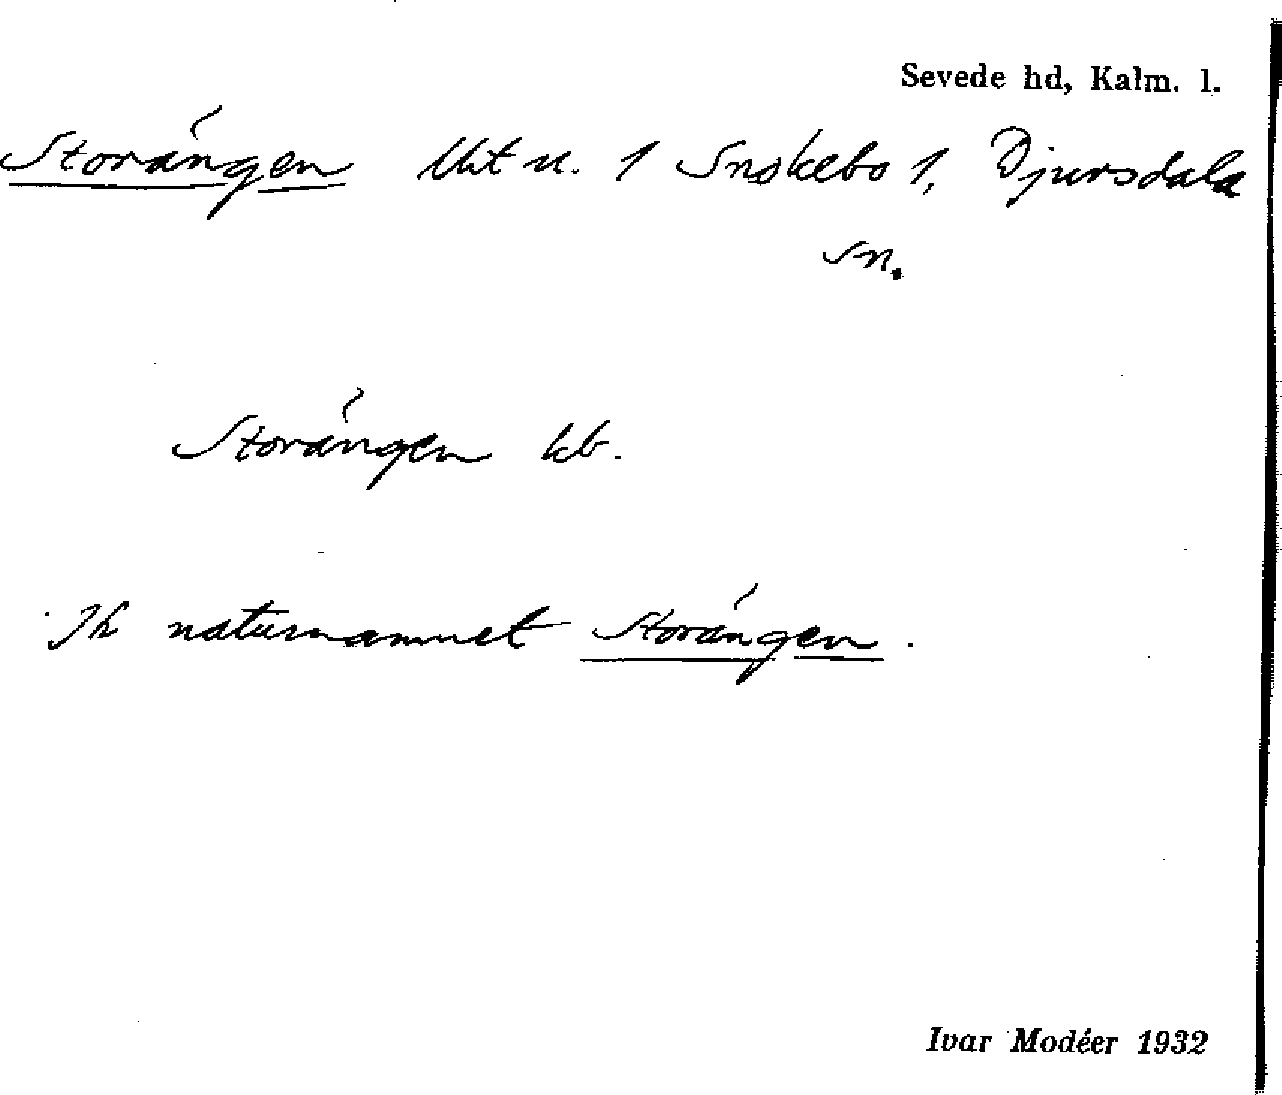 Sevede hd, Kalm. l.
Storängen Utn. 1 Snokebo 1, Djursdala
sn.
Storängen kb.
Ih naturnamnet Storängen.
Ivar Modéer 1932